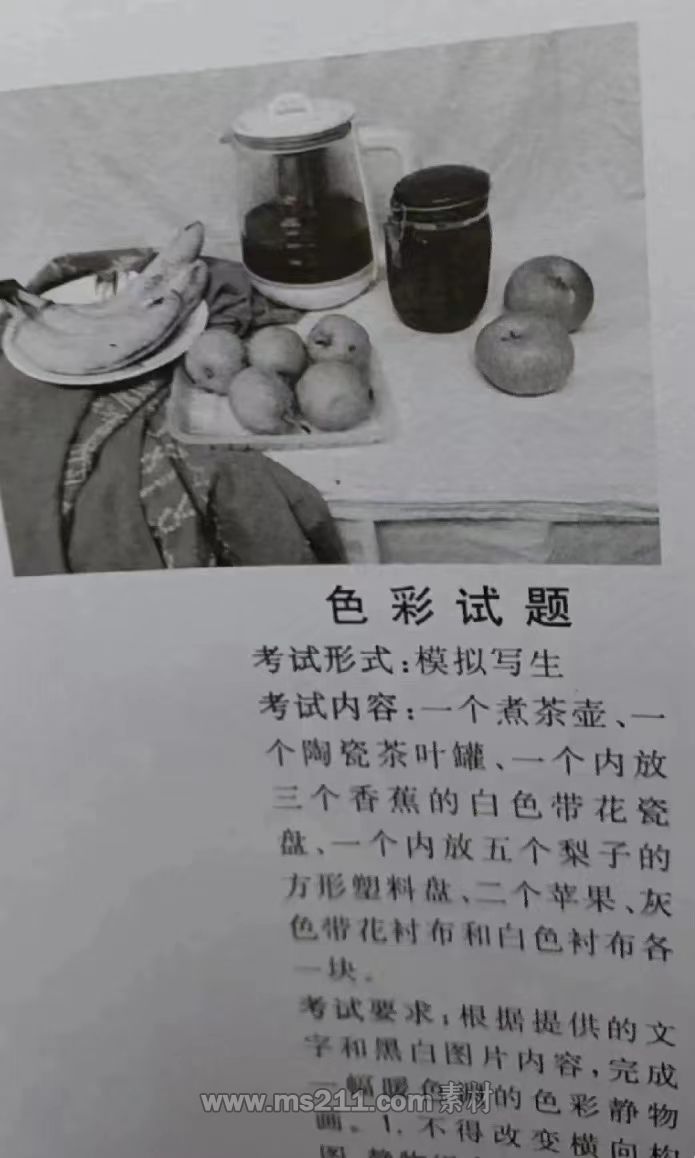 色彩试题
考试形式：模拟写生
考试内容：一个煮茶壶、一
个陶瓷茶叶罐、一个内放
三个香蕉的白色带花瓷
盘、一个内放五个梨子的
方形塑料盘、二个苹果、灰
色带花衬布和白色衬布各
一块。
考试要求：根据提供的文
字和黑白图片内容，完成
一幅暖色调的色彩静物
www.ms211.com 素材
画。1.不得改变横向构
图